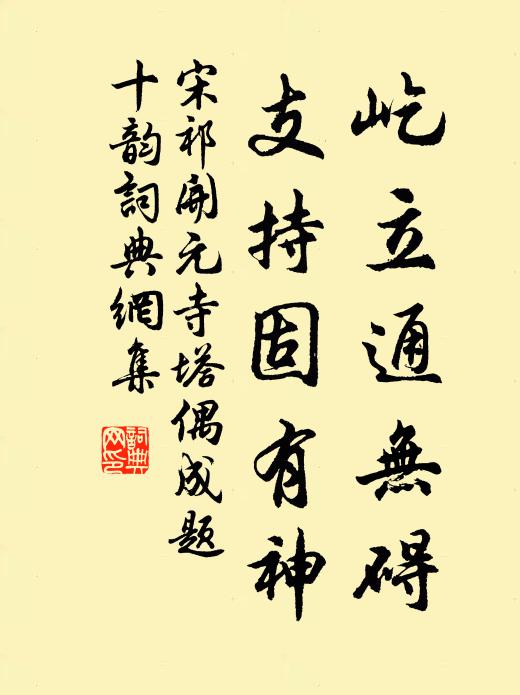 屹立通無碍
支持固有神
宋祁開元寺塔偶成題
十韵詞典網集
詞典
网印